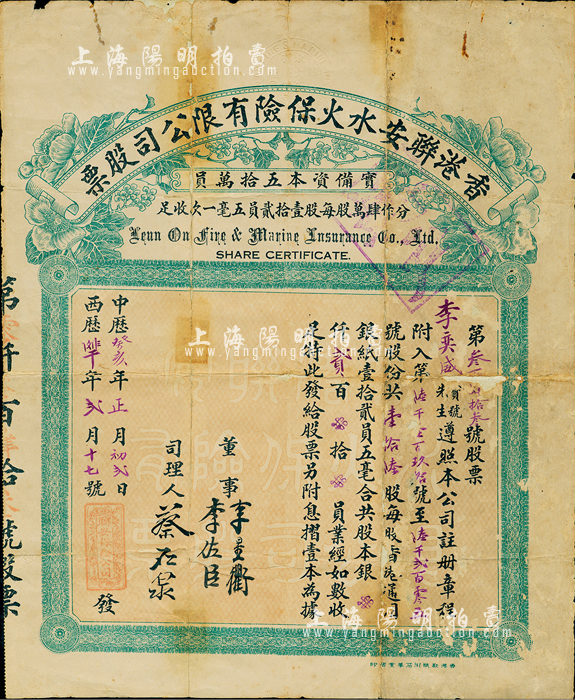 上海陽明拍賣
www.yangmingauction.com
香港聯安水火保險有限公司股票
實備資本五拾萬員
分作肆萬股每股壹拾貳員五毫一次收足
Leun On Fire & Marine Insurance Co., Ltd.
SHARE CERTIFICATE.
第叁 拾叁號股票
李奕成 寶號 先生 遵照本公司註冊章程
附入第陸千 百玖拾 號至陸千貳百零 
號股份共壹拾陸股每股旨港通用
銀紙壹拾貳員五毫合共股本銀
仟貳百 拾 員業經如數收
足特此發給股票另附息摺壹本為據
董事
李佐臣
司理人
中歷癸亥年正月初弍日
西歷 年弍月十七號
發
第 仟 百 拾 號股票
上海陽明拍賣
www.yangmingauction.com
上海陽明拍賣
www.yangmingauction.com